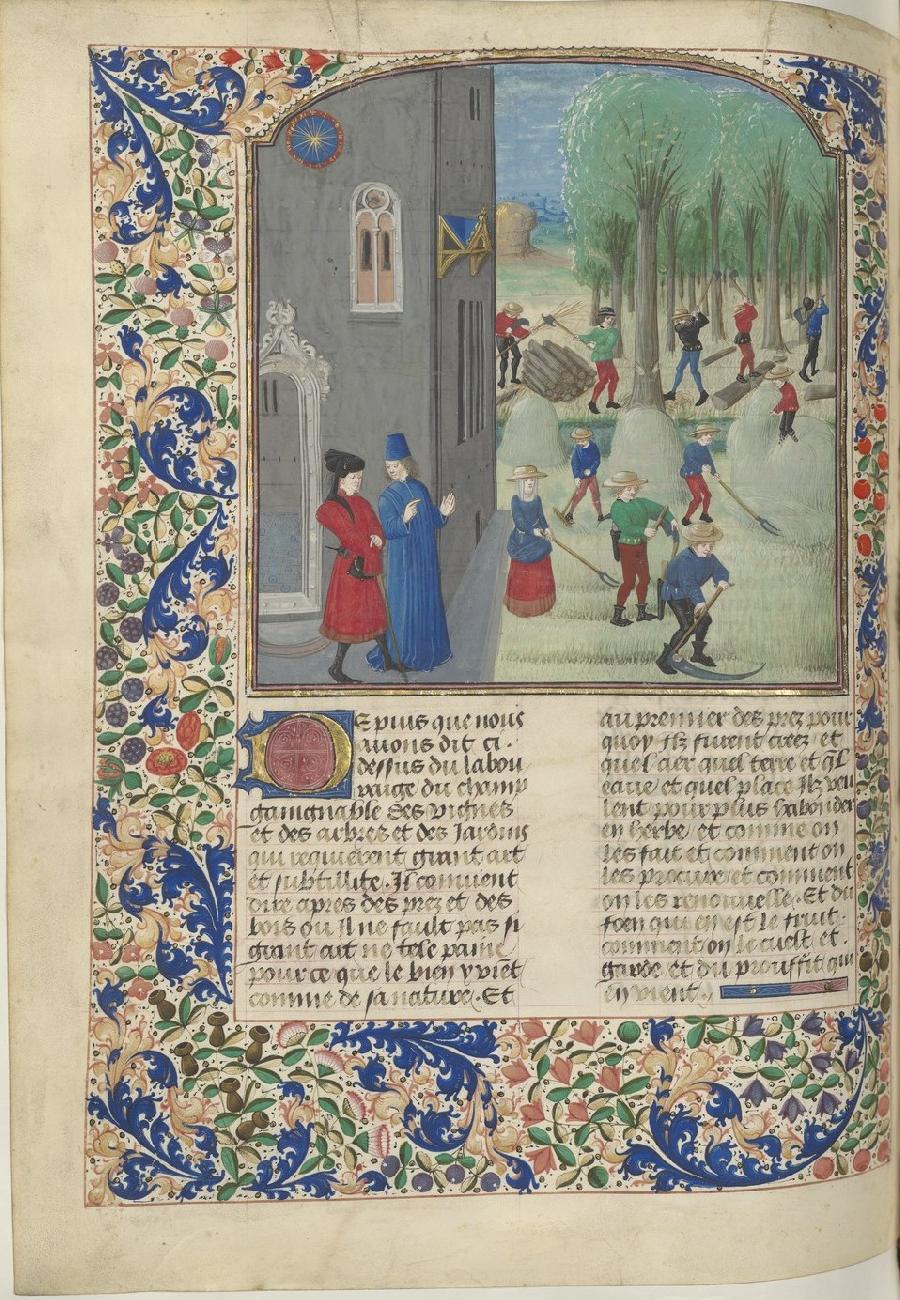 Depuis que nous
auons dit ci
dessus du labou
raige du champ
gaaignable Des vignes
et des arbres et des Jardins
qui requierent grant art
et subtillite. Il conuient
dire apres des prez et des
bois ou Il ne fault pas si
grant art ne tele paine
pour ce que le bien y viēt
comme de sa nature. Et
au premier des prez pour
quoy Ilz furent creez et
quel aer quel terre et q̄l
eaue et quel place Ilz veu
lent pour plus habonder
en herbe et comme on
les fait et comment on
les procure et comment
on les renouuelle. Et du
foen qui en est le fruit.
comment on le cueilt et.
garde et du prouffit qui
en vient.